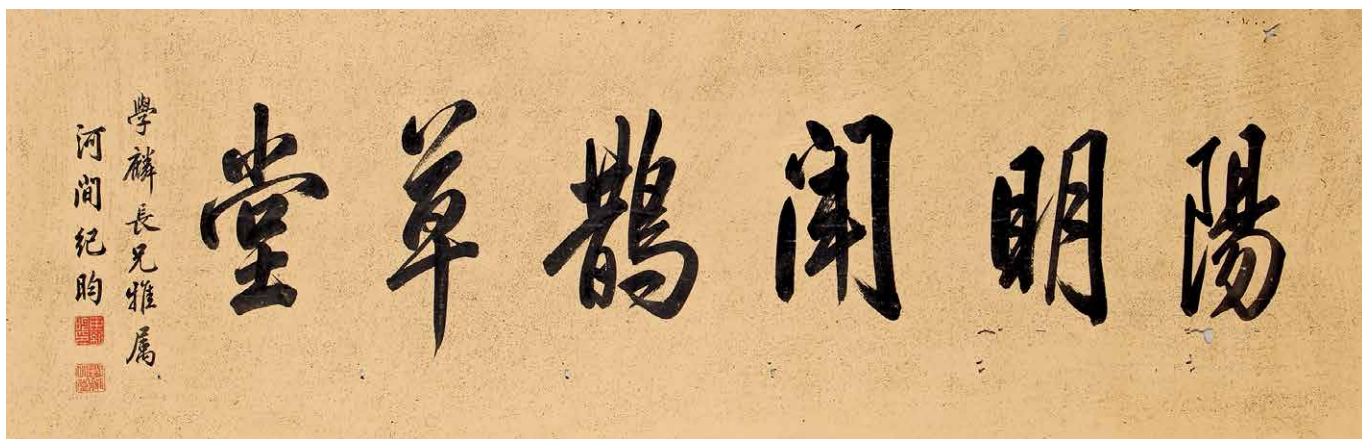 陽明聞鵲草堂
學麟長兄雅属
河間紀昀